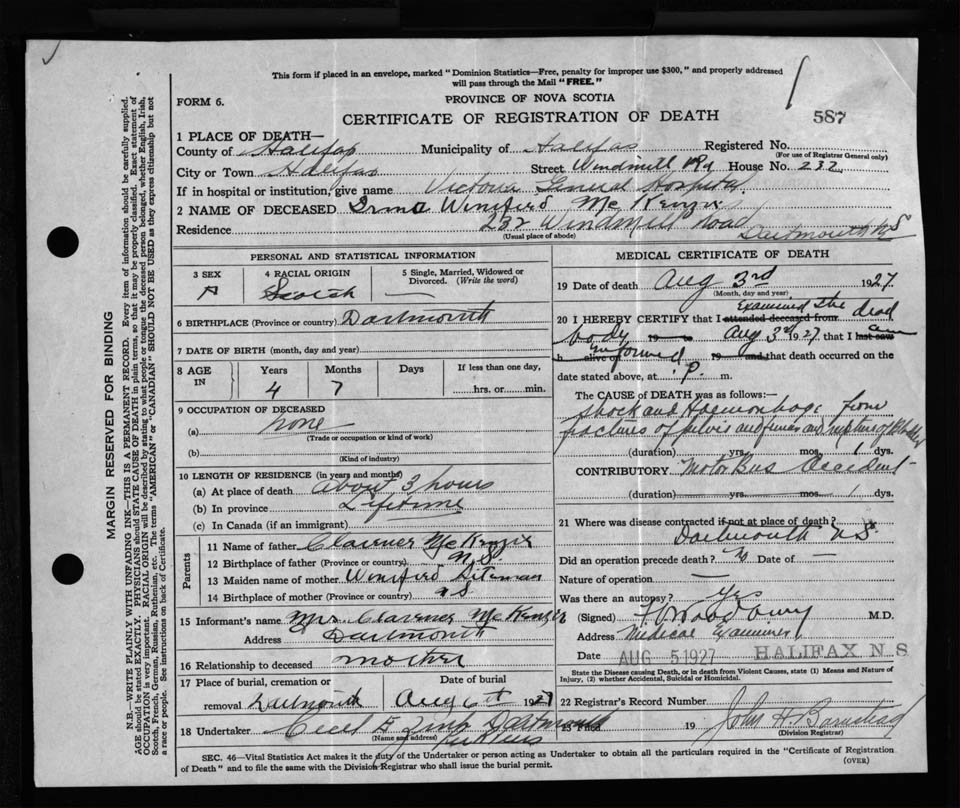 This form if placed in an envelope, marked "Dominion Statistics—Free, penalty for improper use $300," and properly addressed
will pass through the Mail "FREE."
FORM 6.
PROVINCE OF NOVA SCOTIA
CERTIFICATE OF REGISTRATION OF DEATH
587
1 PLACE OF DEATH—
County of Halifax Municipality of Halifax Registered No.
(For use of Registrar General only)
City or Town Halifax Street Windmill Rd House No. 232
If in hospital or institution, give name Victoria General Hospital
2 NAME OF DECEASED Irma Winifird McKenzie
Residence 232 Windmill Road Dartmouth N S
(Usual place of abode)
PERSONAL AND STATISTICAL INFORMATION
3 SEX
4 RACIAL ORIGIN
Scotch
5 Single, Married, Widowed or Divorced. (Write the word)
—
6 BIRTHPLACE (Province or country) Dartmouth
7 DATE OF BIRTH (month, day and year)
8 AGE IN
Years Months Days If less than one day,
4 7 hrs. or min.
9 OCCUPATION OF DECEASED
(a) none
(Trade or occupation or kind of work)
(b)
(Kind of industry)
10 LENGTH OF RESIDENCE (in years and months)
(a) At place of death about 3 hours
(b) In province Lifetime
(c) In Canada (if an immigrant)
Parents
11 Name of father Clarener McKenzie
12 Birthplace of father (Province or country) N.S.
13 Maiden name of mother Winifird
14 Birthplace of mother (Province or country) N S
15 Informant's name Mrs Clarener McKenzie
Address Dartmouth
16 Relationship to deceased mother
17 Place of burial, cremation or Date of burial
removal Dartmouth Aug 6th 1927
18 Undertaker Cecil E Zink Dartmouth
(Name and address)
MEDICAL CERTIFICATE OF DEATH
19 Date of death Aug 3rd 1927
(Month, day and year)
20 I HEREBY CERTIFY that I attended deceased from examined the dead
body 19 to Aug 3rd 1927 that I last saw am
h alive on informed 19 and that death occurred on the
date stated above, at P. m.
The CAUSE of DEATH was as follows:—
Shock and Haemorrhage from
fractures of pelvis and femur and rupture of Bladder
(duration) yrs. mos. 1 dys.
CONTRIBUTORY Motor Bus Accident
(duration) yrs. mos. 1 dys.
21 Where was disease contracted if not at place of death?
Dartmouth N.S.
Did an operation precede death? No Date of —
Nature of operation —
Was there an autopsy? Yes
(Signed) Woodbury M.D.
Address Medical Examiner
Date AUG 5 1927 HALIFAX N.S
State the Disease causing Death, or in death from Violent Causes, state (1) Means and Nature of
Injury, (2) whether Accidental, Suicidal or Homicidal.
22 Registrar's Record Number
23 Filed 19 John H. Barnstead
(Division Registrar)
SEC. 46—Vital Statistics Act makes it the duty of the Undertaker or person acting as Undertaker to obtain all the particulars required in the "Certificate of Registration
of Death" and to file the same with the Division Registrar who shall issue the burial permit.
(OVER)
MARGIN RESERVED FOR BINDING
N.B.—WRITE PLAINLY WITH UNFADING INK—THIS IS A PERMANENT RECORD. Every item of information should be carefully supplied.
AGE should be stated EXACTLY. PHYSICIANS should STATE CAUSE OF DEATH in plain terms, so that it may be properly classified. Exact statement of
OCCUPATION is very important. RACIAL ORIGIN will be described by stating to what people or tongue the deceased person belonged, whether English, Irish,
Scotch, French, German, Russian, Ruthenian, etc. The terms "AMERICAN" or "CANADIAN" SHOULD NOT BE USED as they express citizenship but not
a race or people. See instructions on back of Certificate.